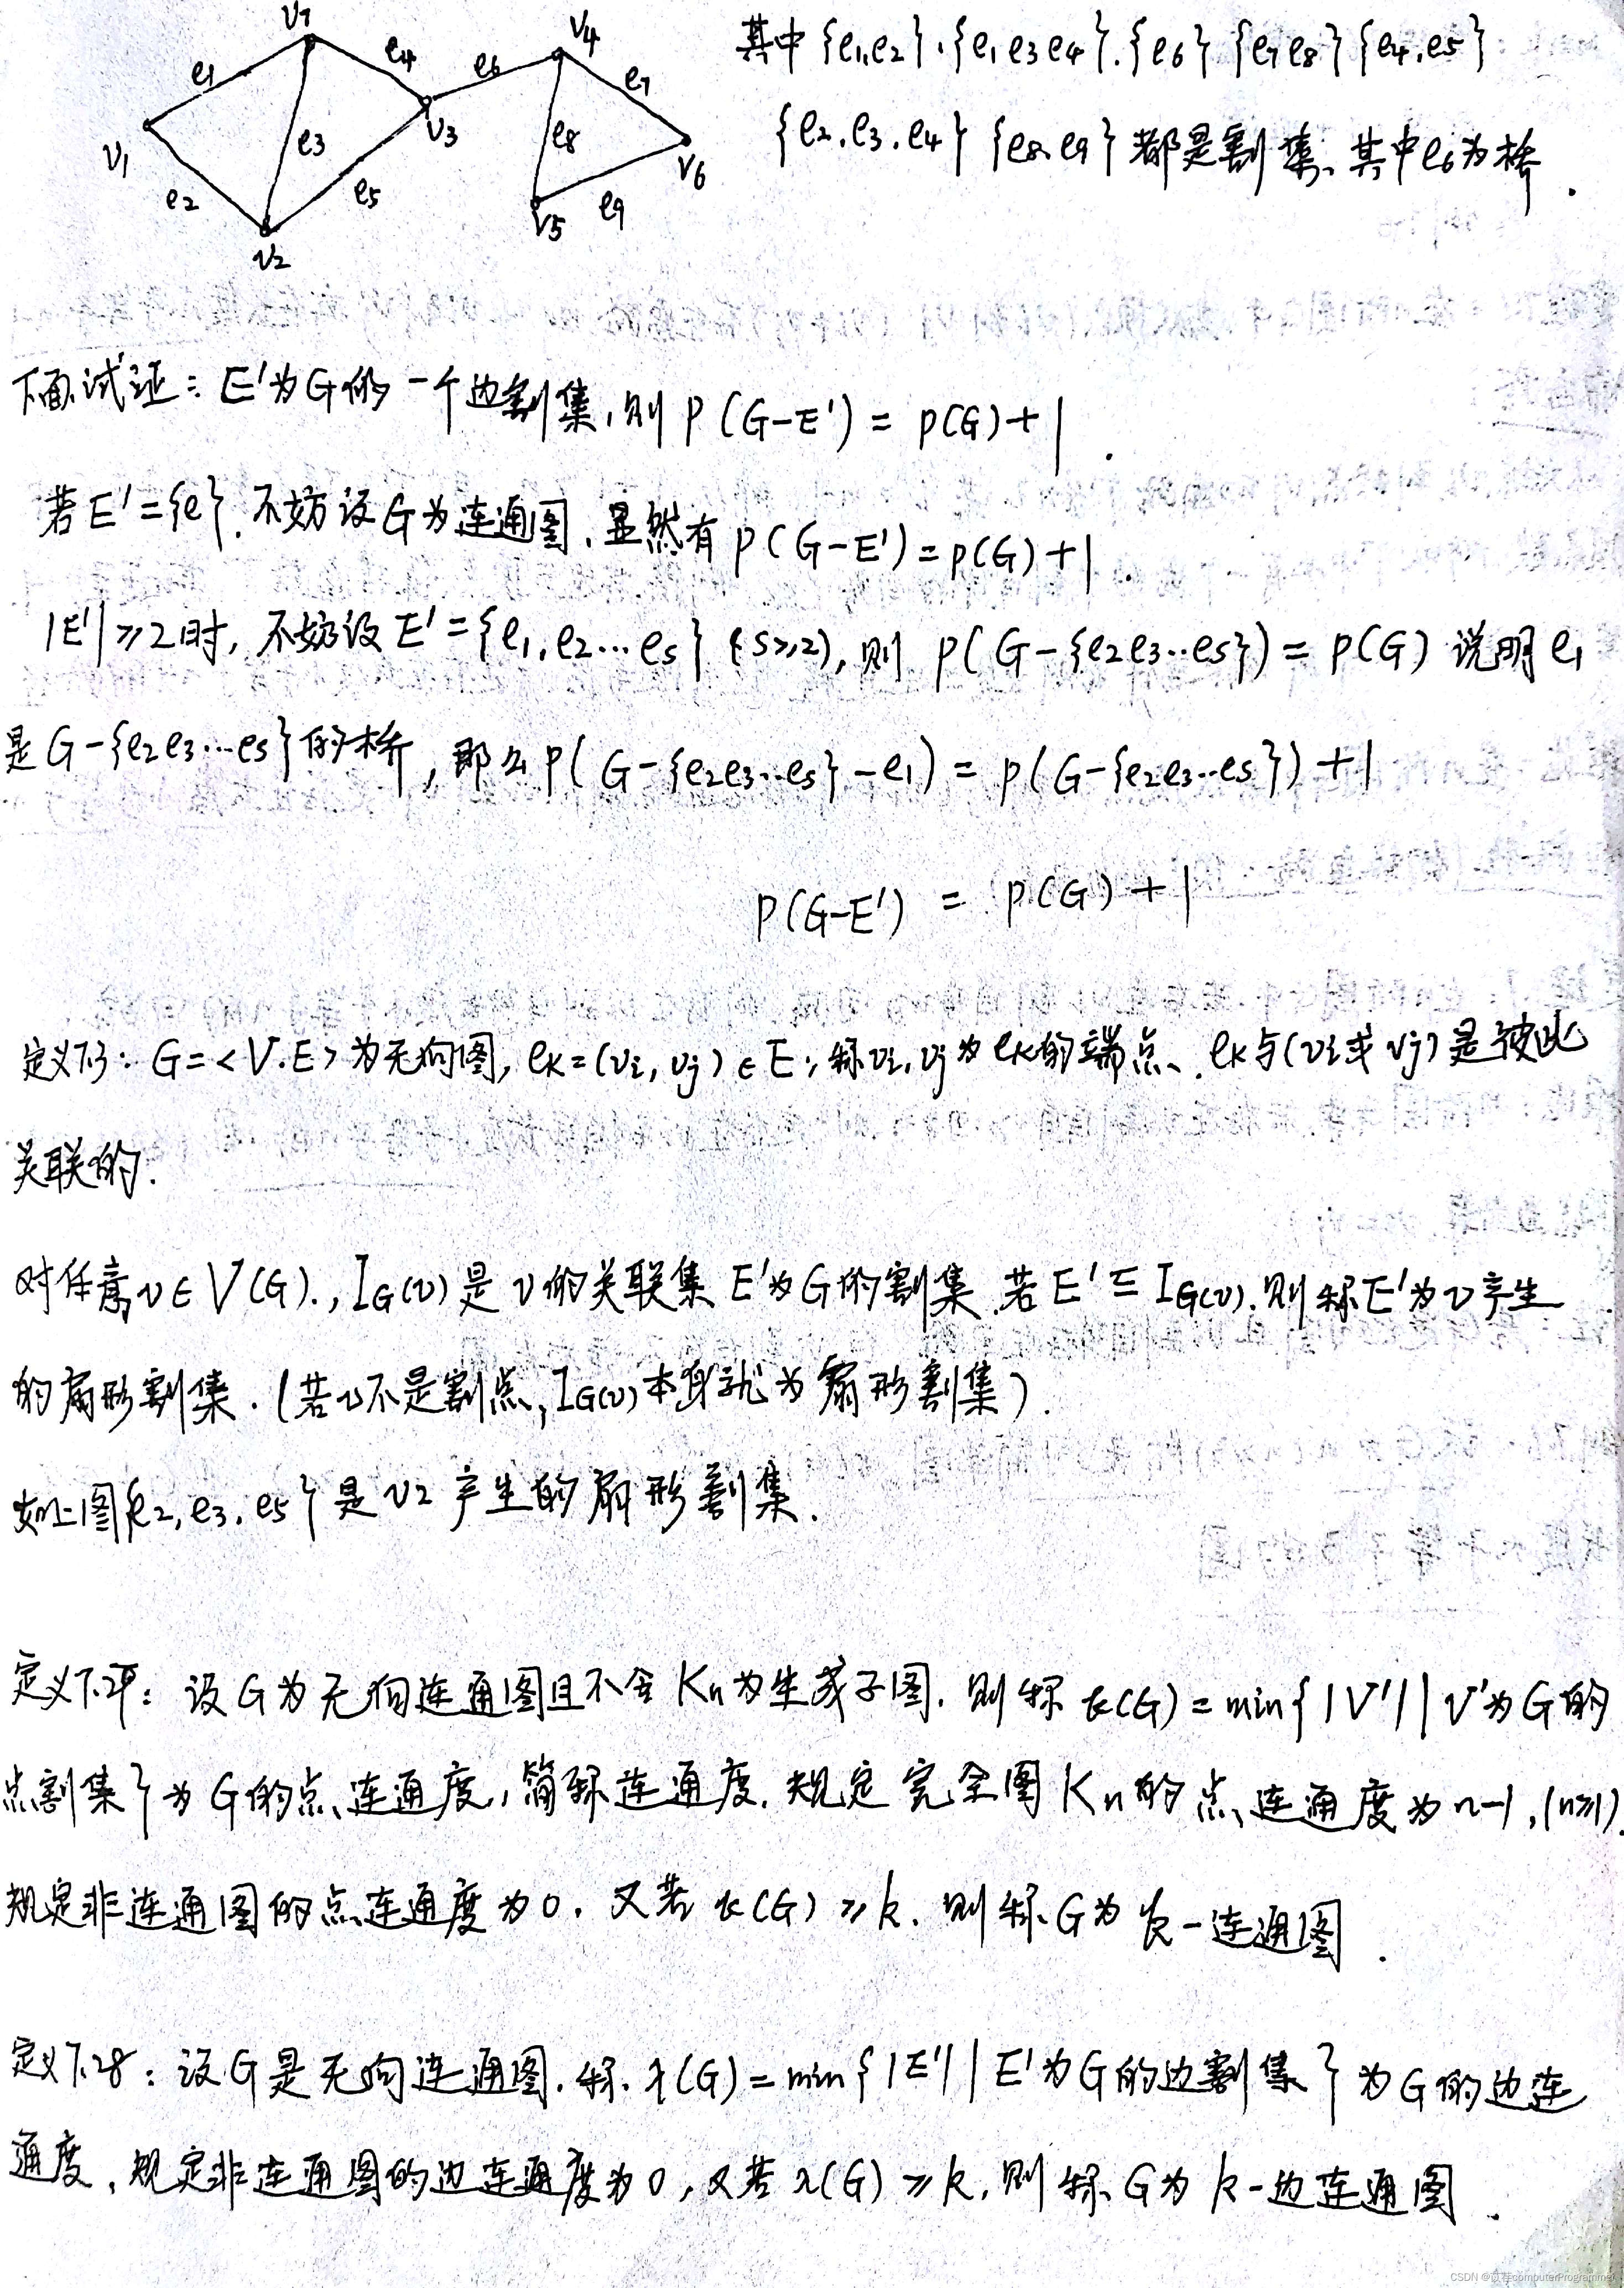 v7
e1
e4
e3
v1
e2
v2
e5
v3
e6
v4
e7
e8
v6
v5
e9
其中{e1,e2}.{e1 e3 e4}.{e6} {e7 e8} {e4.e5}
{e2.e3.e4} {e8.e9}都是割集、其中e6为桥.
下面试证:E'为G的一个边割集,则 P(G-E') = P(G)+1.
若E'={e}.不妨设G为连通图、显然有P(G-E')=P(G)+1.
|E'|≥2时,不妨设E'={e1,e2...es} (s≥2),则 P(G-{e2e3..es}) = P(G) 说明e1
是G-{e2e3...es}的桥,那么P(G-{e2e3..es}-e1) = P(G-{e2e3..es})+1
P(G-E') = P(G)+1
定义7.13: G=<V.E>为无向图, ek=(vi,vj)∈E,称vi,vj为ek的端点、ek与(vi或vj)是彼此
关联的.
对任意v∈V(G).,IG(v)是v的关联集 E'为G的割集.若E'⊆IG(v).则称E'为v产生
的扇形割集.(若v不是割点,IG(v)本身就为扇形割集).
如上图{e2,e3.e5}是v2产生的扇形割集.
设G为无向连通图且不含Kn为生成子图.则称κ(G)=min{|V'||V'为G的
点割集}为G的点连通度,简称连通度.规定完全图Kn的点连通度为n-1,(n≥1).
规定非连通图的点连通度为0.又若κ(G)≥k.则称G为k-连通图.
定义7.28:设G是无向连通图.称.λ(G)=min{|E'||E'为G的边割集}为G的边连
通度.规定非连通图的边连通度为0,又若λ(G)≥k,则称G为k-边连通图.